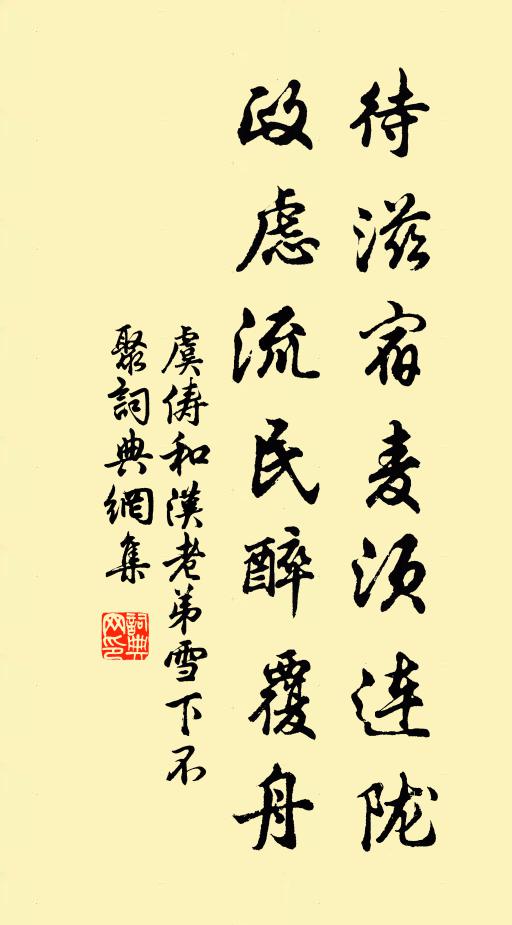 待滋宿麦须连陇
政虑流民醉覆舟
虞俦和汉老弟雪下不
聚詞典網集
詞典网印